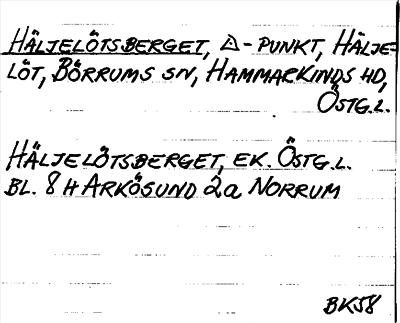 HÄLJELÖTSBERGET, △-PUNKT, HÄLJE-
LÖT, BÖRRUMS SN, HAMMARKINDS HD,
ÖSTG.L.
HÄLJELÖTSBERGET, EK. ÖSTG.L.
BL. 8 H ARKÖSUND 2a NORRUM
BK58